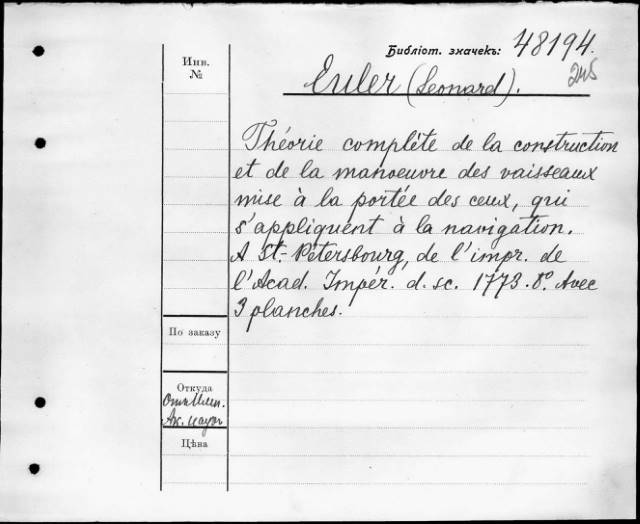 Библіот. значекъ: 48194.
245
Инв.
№
Euler (Leonard).
Théorie complète de la construction
et de la manoeuvre des vaisseaux
mise à la portée des ceux, qui
s'appliquent à la navigation.
A St.-Pétersbourg, de l'impr. de
l'Acad. Impér. d. sc. 1773. 8º. Avec
3 planches.
По заказу
Откуда
Ак. наукъ
Цѣна